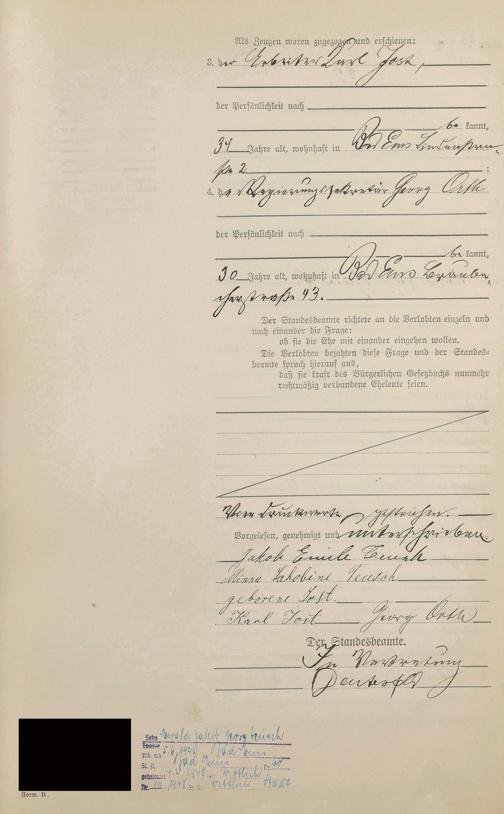 Als Zeugen waren zugezogen und erschienen:
3. der Arbeiter Karl Jost,
der Persönlichkeit nach
be kannt,
34 Jahre alt, wohnhaft in Bad Ems Lindenstra-
ße 2 ;
4. der Regierungssekretär Georg Orth
der Persönlichkeit nach
be kannt,
30 Jahre alt, wohnhaft in Bad Ems Braubа-
cherstraße 43.
Der Standesbeamte richtete an die Verlobten einzeln und
nach einander die Frage:
ob sie die Ehe mit einander eingehen wollen.
Die Verlobten bejahten diese Frage und der Standes-
beamte sprach hierauf aus,
daß sie kraft des Bürgerlichen Gesetzbuchs nunmehr
rechtmäßig verbundene Eheleute seien.
Druckworte gestrichen.
Vorgelesen, genehmigt und unterschrieben.
Jakob Emile Teusch
Minna Jakobine Teusch
geborene Jost.
Karl Jost Georg Orth
Der Standesbeamte.
In Vertretung
Sohn Ewald Jakob Georg Teusch
Bad Ems
Bad Ems
1948 Wittlich
Nr. 10 1948 Wittlich-Stadt
Form. B.